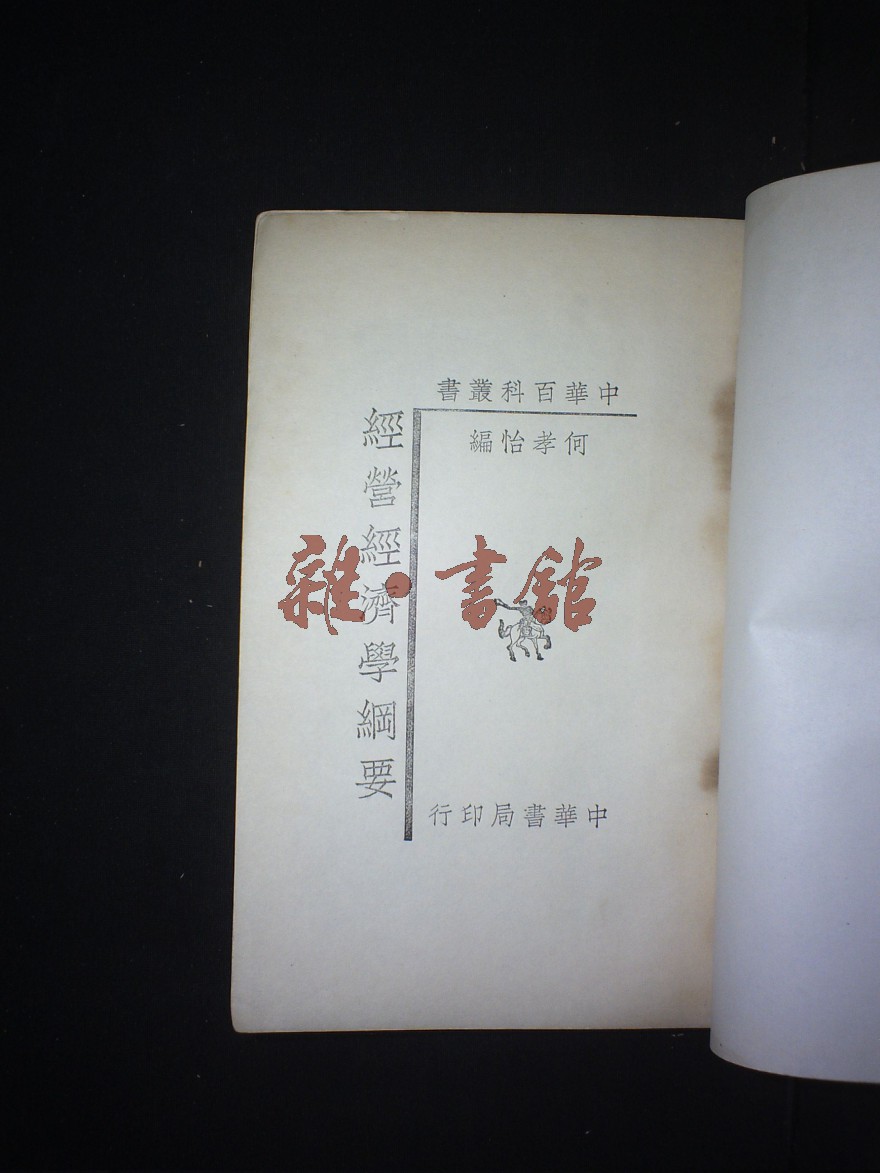 中華百科叢書
何孝怡編
經營經濟學綱要
雜·書館
中華書局印行